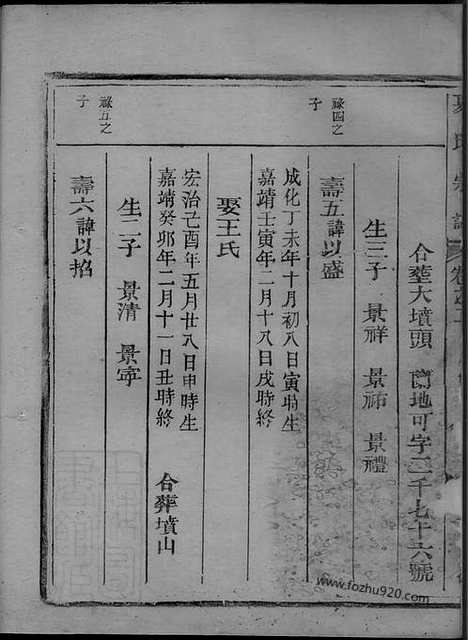 夏氏宗譜 卷之二
合塟大墳頭 蕳地可字二千七百六號
生三子 景祥 景祐 景禮
祿四之子
壽五諱以盛
成化丁未年十月初八日寅時生
嘉靖壬寅年二月十八日戌時終
娶王氏
宏治己酉年五月廿八日申時生
嘉靖癸卯年二月十一日丑時終 合葬墳山
生二子 景清 景寧
祿五之子
壽六諱以招
www.fozhu920.com